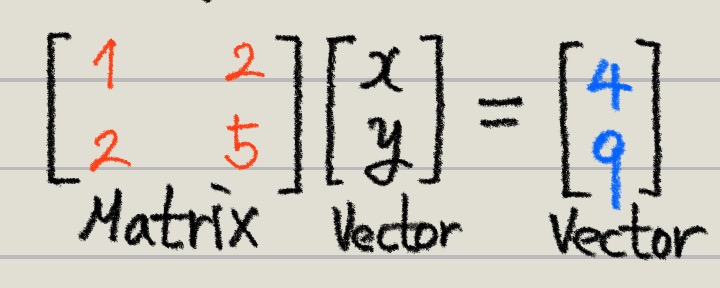 [1 2] [x] = [4]
[2 5] [y] [9]
Matrix Vector Vector